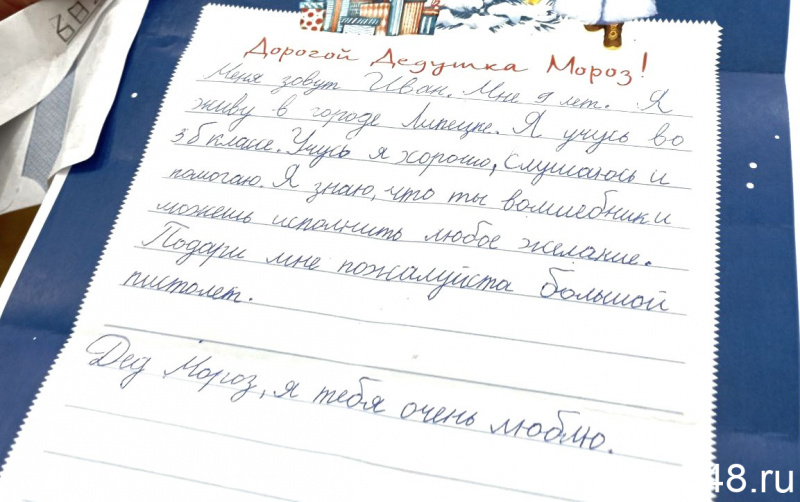 Дорогой Дедушка Мороз!
Меня зовут Иван. Мне 9 лет. Я
живу в городе Липецке. Я учусь во
3б классе. Учусь я хорошо, слушаюсь и
помогаю. Я знаю, что ты волшебник и
можешь исполнить любое желание.
Подари мне пожалуйста большой
пистолет.
Дед Мороз, я тебя очень люблю.
48.ru